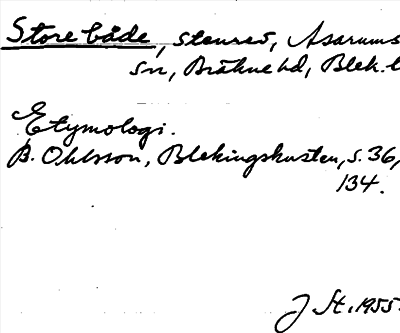 Store både, stenrev, Asarums
sn, Bräkne hd, Blek. l
Etymologi.
B. Ohlsson, Blekingskusten, s. 36,
134.
J St. 1955.